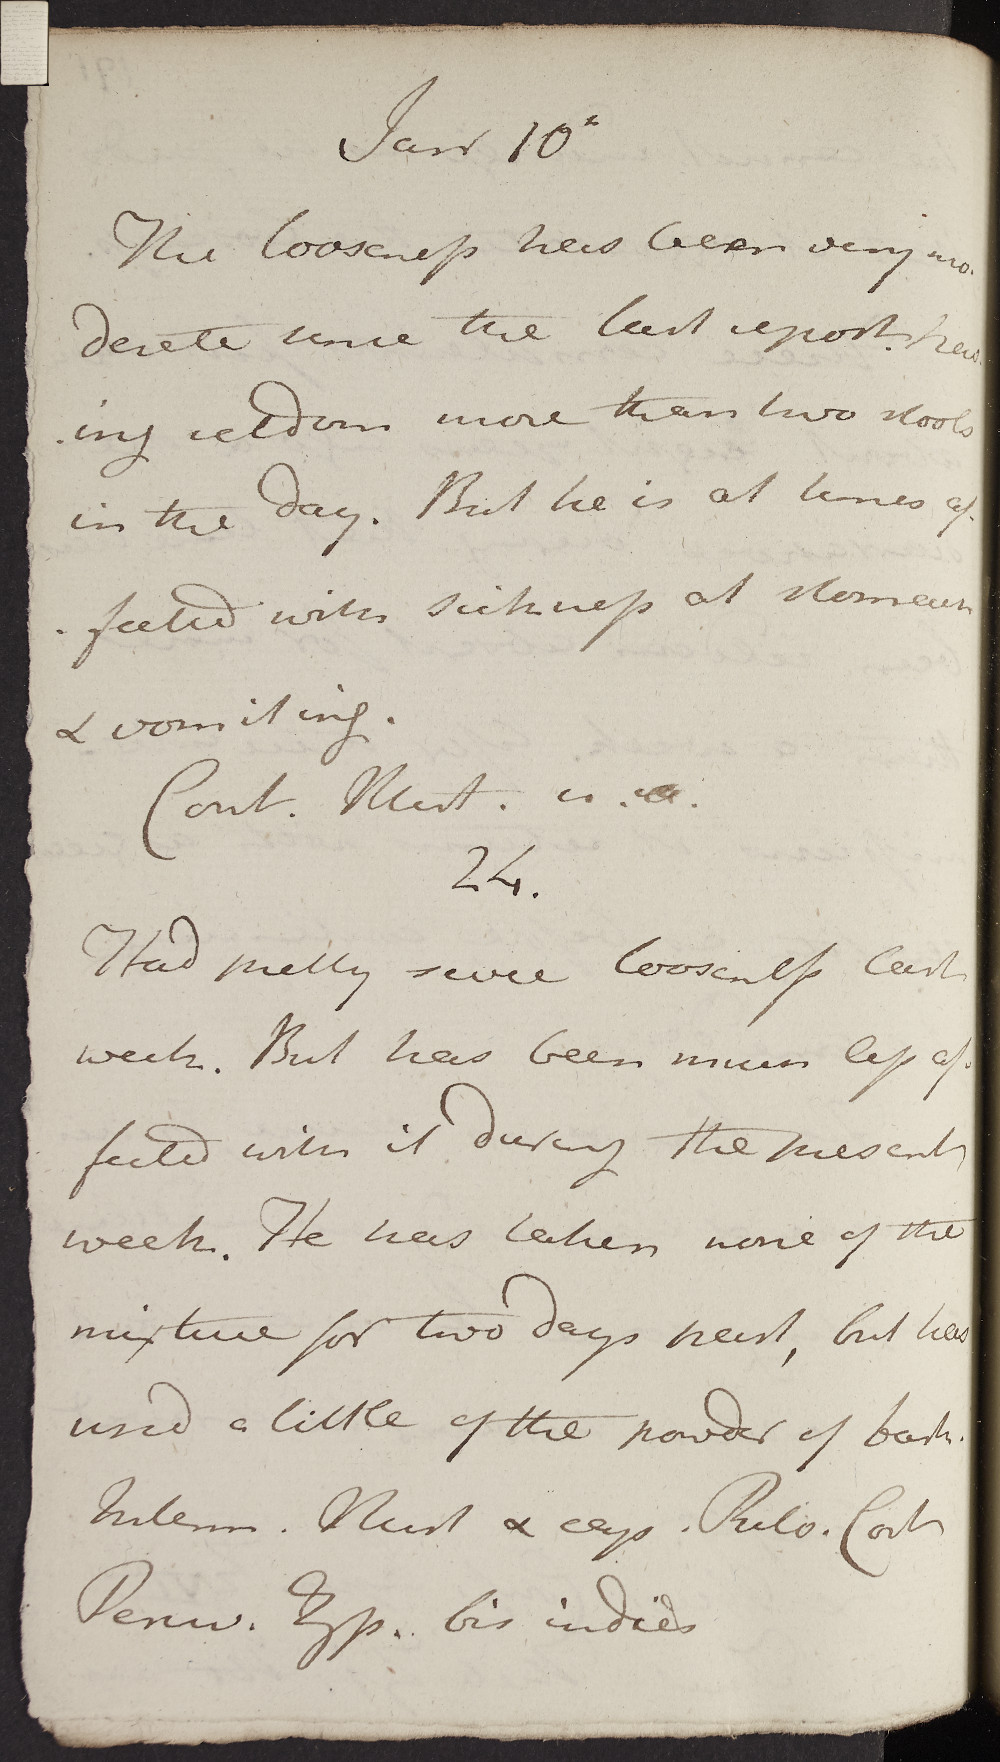 Janr 10th
The looseness has been very mo-
derate since the last report. hav-
-ing seldom more than two stools
in the day. But he is at times af-
-fected with sickness at stomach
& vomiting.
Cont. Mist. u. a.
24.
Had pretty severe looseness last
week. But has been much less af-
fected with it during the present
week. He has taken none of the
mixture for two days past, but has
used a little of the powder of bark.
Interm. Mist & cap. Pulv. Cort
Peruv. ʒſs. bis indies